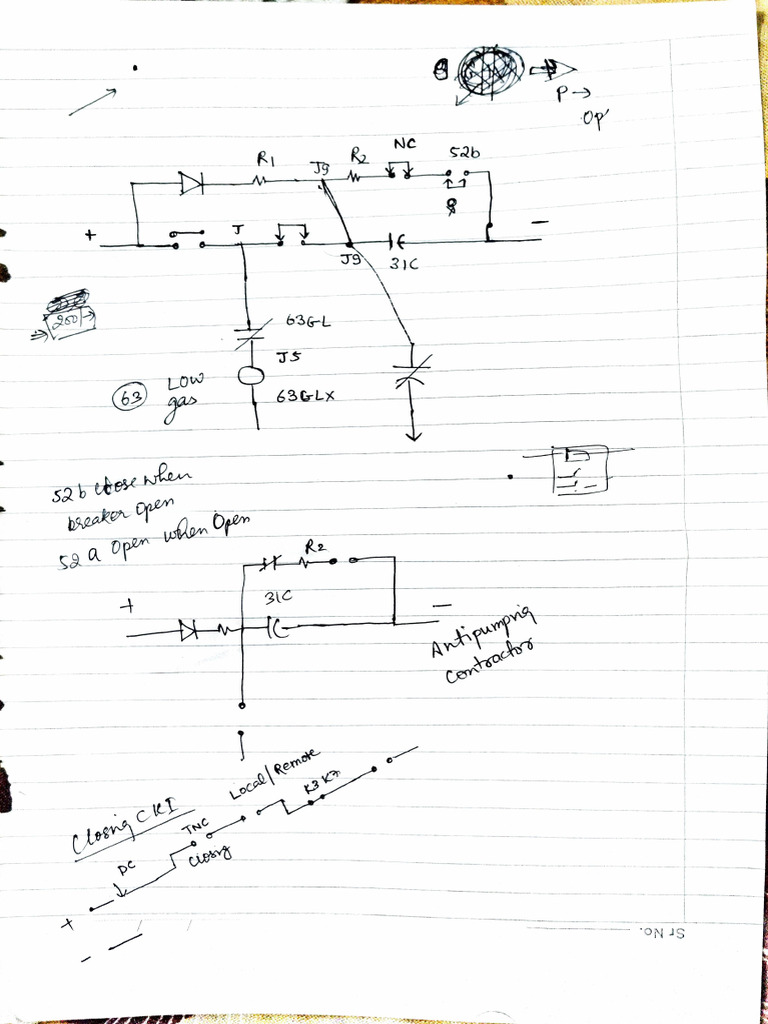 P →
Op'
R1
J9
R2
NC
52b
+
J
J9
31C
−
200
63GL
J5
63 LOW
gas
63GLX
52b close when
breaker open
52 a Open when Open
R2
31C
+
−
Antipumpnig
Contractor
Local/Remote
K3 K7
Closnig CKI
TNC
Closnig
DC
+
−
Sr No.